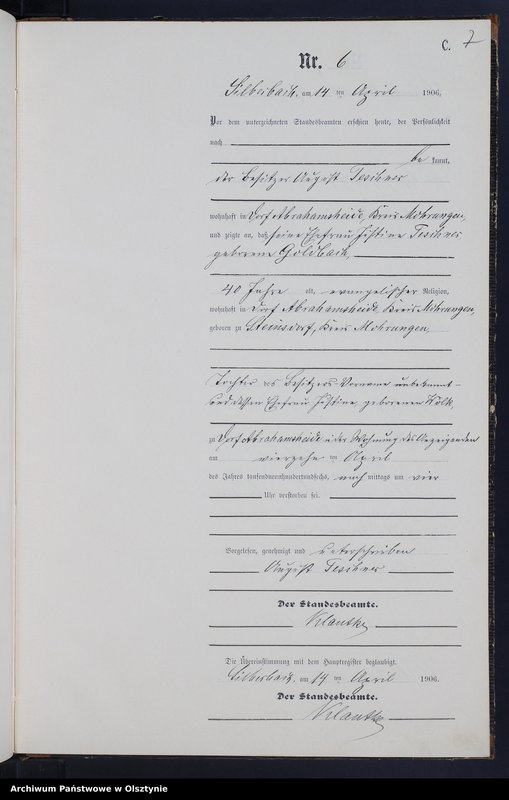 C. 7
Nr. 6
Silberbach, am 14 ten April 1906.
Vor dem unterzeichneten Standesbeamten erschien heute, der Persönlichkeit
nach
be kannt,
der Besitzer August Teschner
wohnhaft in Dorf Abrahamsheide, Kreis Mohrungen,
und zeigte an, daß seine Ehefrau Justine Teschner
geborene Goldbach,
40 Jahre alt, evangelischer Religion,
wohnhaft in Dorf Abrahamsheide, Kreis Mohrungen,
geboren zu Steinsdorf, Kreis Mohrungen,
Tochter des Besitzers Vorname unbekannt
und dessen Ehefrau Justine, geborenen
zu Dorf Abrahamsheide in der Wohnung des Anzeigenden
am vierzehn ten April
des Jahres tausendneunhundertundsechs, nach mittags um vier
Uhr verstorben sei.
Vorgelesen, genehmigt und unterschrieben
August Teschner
Der Standesbeamte.
Klautke
Die Übereinstimmung mit dem Hauptregister beglaubigt.
Silberbach, am 14 ten April 1906.
Der Standesbeamte.
Klautke
Archiwum Państwowe w Olsztynie